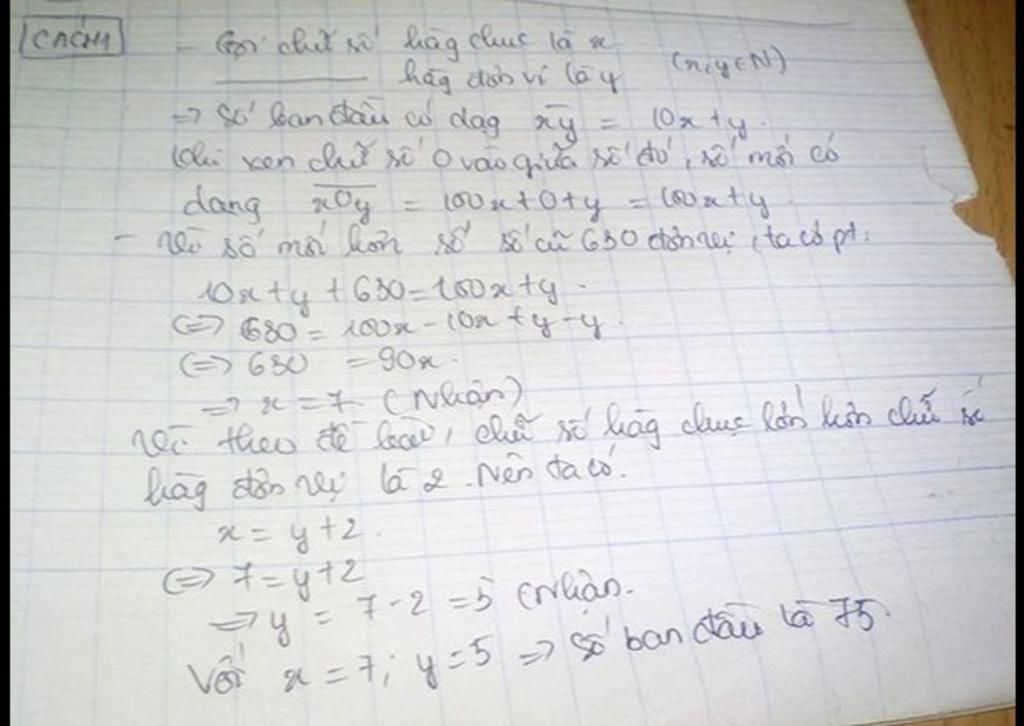 CÁCH1
- Gọi chữ số hàg chục là x
hàg đơn vị là y (x,y ∈ N)
=> Số ban đầu có dạg x̅y̅ = 10x + y.
Khi xen chữ số 0 vào giữa số đó, số mới có
dạng x̅0̅y̅ = 100x + 0 + y = 100x + y.
- Vì số mới hơn số số cũ 630 đơn vị, ta có pt:
10x + y + 630 = 100x + y.
<=> 630 = 100x - 10x + y - y.
<=> 630 = 90x.
=> x = 7 (Nhận)
Vì theo đề bài, chữ số hàg chục lớn hơn chữ số
hàg đơn vị là 2. Nên ta có.
x = y + 2.
<=> 7 = y + 2
=> y = 7 - 2 = 5 (Nhận.
Với x = 7; y = 5 => Số ban đầu là 75.